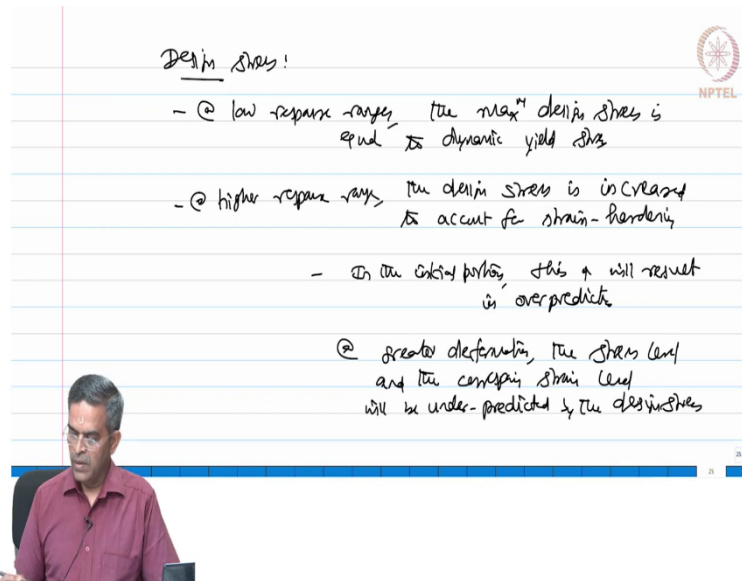 Design stress:
NPTEL
- @ low response ranges, the maxm design stress is
equal to dynamic yield stress
- @ higher response range, the design stress is increased
to account for strain-hardening
- In the initial portion, this ↑ will result
in overpredict
@ greater deformation, the stress level
and the strain level
will be under-predicted by the design stress
25
25